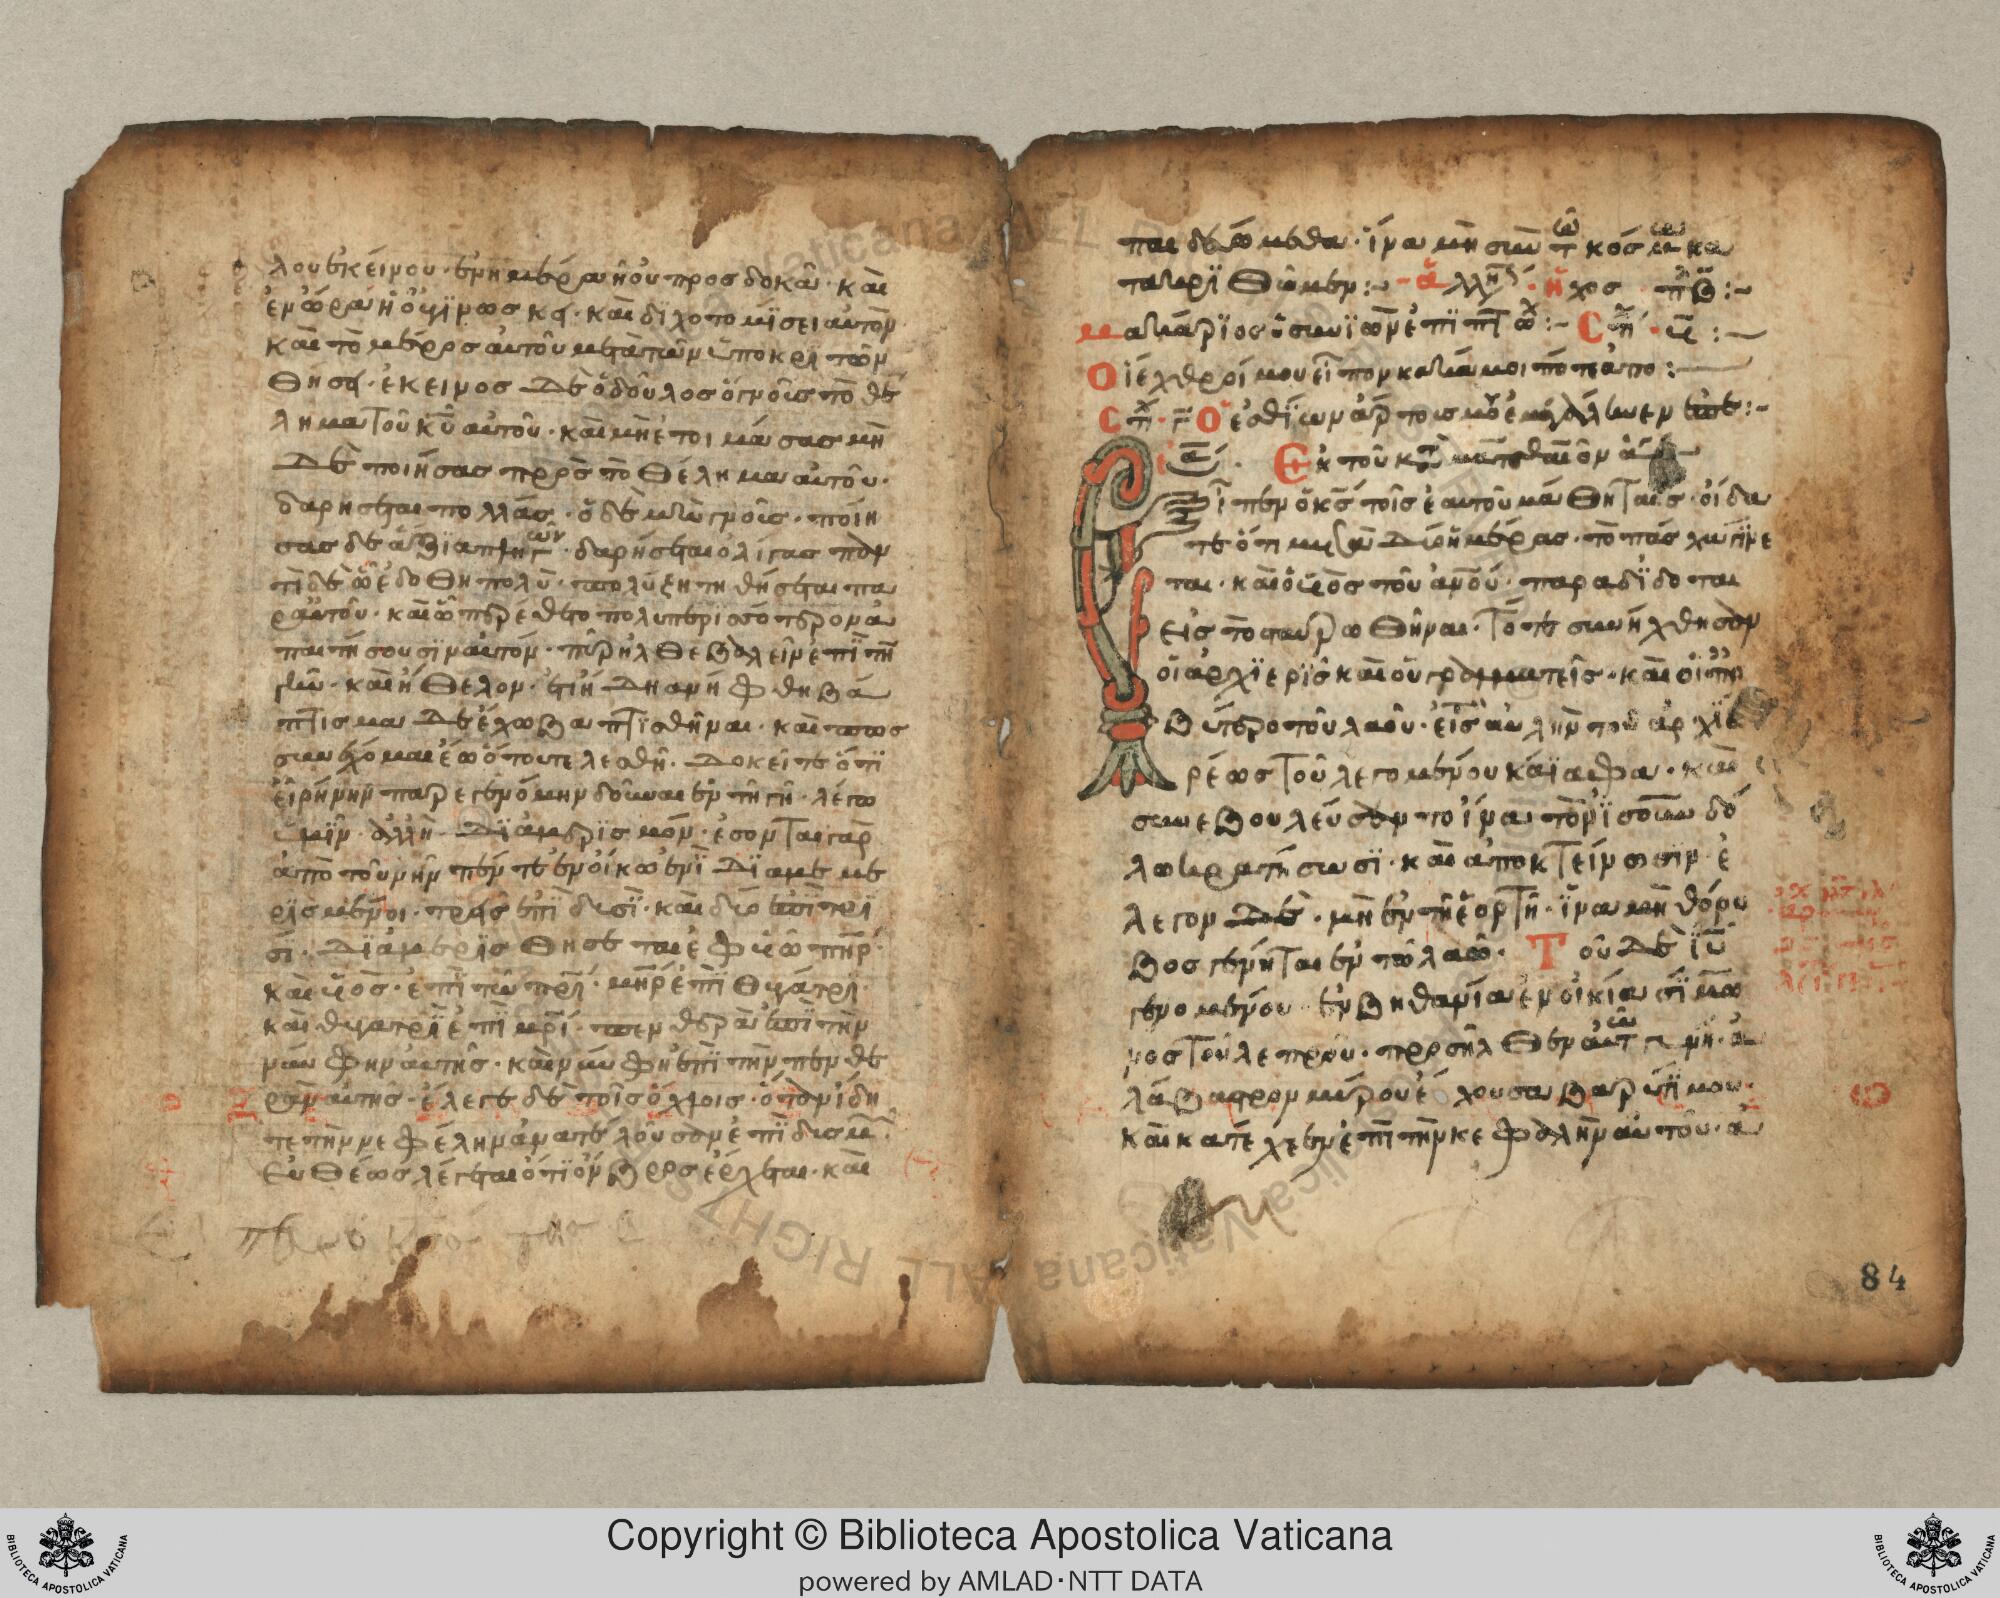 λου ἐκείνου· ἐν ἡμέρα ἧ οὐ προσδοκᾶ· καὶ
ἐν ὥρα ἧ οὐ γινώσκει· καὶ διχοτομίσει αὐτὸν
καὶ τὸ μέρος αὐτοῦ μετὰ τῶν ὑποκριτῶν
θήσει· ἐκεῖνος δὲ ὁ δοῦλος ὁ γνοὺς τὸ θέ
λημα τοῦ κυ αὐτοῦ· καὶ μὴ ἑτοιμάσας μὴ
δὲ ποιήσας πρὸς τὸ θέλημα αὐτοῦ·
δαρήσεται πολλάς· ὁ δὲ μὴ γνούς· ποίη
σας δὲ ἄξια πληγῶν· δαρήσεται ὀλίγας παν
τὶ δὲ ὧ ἐδόθη πολὺ· πολὺ ζητηθήσεται πα
ρ αὐτοῦ· καὶ ὧ παρέθετο πολὺ περισσότερον ἀ
παιτήσουσιν αὐτόν· πῦρ ἦλθε βαλεῖν ἐπὶ τὴν
γῆν· καὶ τί θέλον· εἰ ἤδη ἀνήφθη βά
πτισμα δὲ ἔχω βαπτισθῆναι· καὶ πῶς
συνέχομαι ἕως ὅτου τελεσθῆ· δοκεῖτε ὅτι
εἰρήνην παρεγενόμην δοῦναι ἐν τῆ γῆ· λέγω
ὑμῖν· ἀλλ ἢ διαμερισμόν· ἔσονται γὰρ
ἀπὸ τοῦ νῦν πέντε ἐν οἴκω ἑνὶ διαμεμε
ρισμένοι· τρεῖς ἐπὶ δυσὶ· καὶ δύο ἐπὶ τρι
σί· διαμερισθήσεται ἐφ υἱῶ πηρ·
καὶ υἱὸς ἐπὶ πρι· μηρ ἐπὶ θυγατρί·
καὶ θυγατρὶ ἐπὶ μρί· πενθερὰ ἐπὶ τὴν
νύμφην αὐτῆς· καὶ νύμφη ἐπὶ τὴν πενθε
ρὰν αὐτῆς· ἔλεγε δὲ τοῖς ὄχλοις· ὅταν ἴδη
τε τὴν νεφέλην ἀνατέλουσαν ἐπὶ δυσμ·
εὐθέως λέγεται ὅτι ὄμβρος ἔρχεται· καὶ
παιδευώμεθα· ἵνα μὴ σὺν τῶ κόσμω κα
τακριθῶμεν:~ ἀλλη· ἦχος πλ β:~
μακάριος ὁ συνιῶν ἐπὶ πτωχ:~ Στι·
Οἱ ἐχθροί μου εἶπον κακά μοι πότε ἀπο:
Στι· Ὁ ἐσθίων ἄρτους μου ἐμεγάλυνεν ἐπ:~
Ἐκ τοῦ κατὰ ματθαῖον ἁ
Εἶπεν ὁ κς τοῖς ἑαυτοῦ μαθηταῖς· οἴδα
τε ὅτι μετὰ δύο ἡμέρας· τὸ πάσχα γίνε
ται· καὶ ὁ υἱὸς τοῦ ἀνου· παραδίδοται
εἰς τὸ σταυρωθῆναι· Τότε συνήχθησαν
οἱ ἀρχιερεῖς καὶ οἱ γραμματεῖς· καὶ οἱ πρ
εσβύτεροι τοῦ λαοῦ· εἰς τὴν αὐλὴν τοῦ ἀρχιε
ρέως τοῦ λεγομένου καϊάφα· καὶ
συνεβουλεύσαντο ἵνα τὸν ἰν δό
λω κρατήσωσι· καὶ ἀποκτείνωσιν· ἔ
λεγον δὲ· μὴ ἐν τῆ ἑορτῆ· ἵνα μὴ θόρυ
βος γένηται ἐν τῶ λαῶ· Τοῦ δὲ ιυ
γενομένου ἐν βηθανία ἐν οἰκία σίμω
νος τοῦ λεπροῦ· προσῆλθεν αὐτῶ γυνὴ· ἀ
λάβαστρον μύρου ἔχουσα βαρύτιμου·
καὶ κατέχεεν ἐπὶ τὴν κεφαλὴν αὐτοῦ· ἀ
84
Copyright © Biblioteca Apostolica Vaticana
powered by AMLAD·NTT DATA
BIBLIOTECA APOSTOLICA VATICANA
BIBLIOTECA APOSTOLICA VATICANA